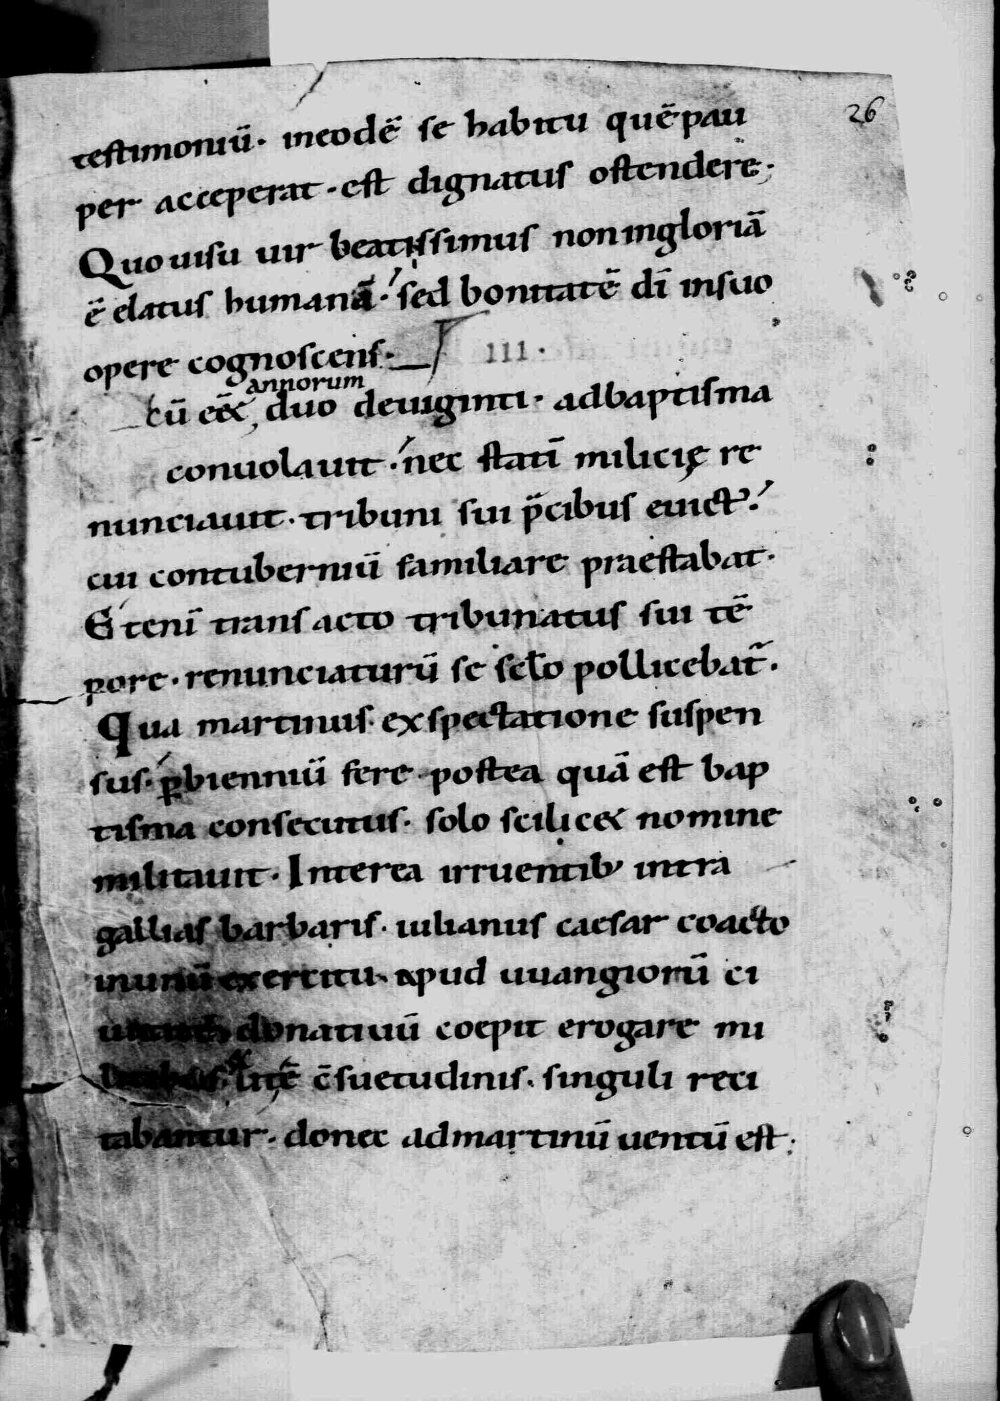 26
testimoniū· ineodē se habitu quē pau
per acceperat· est dignatus ostendere·
Quo uisu uir beatissimus noningloriā
ē elatus humanā· sed bonitatē dī insuo
opere cognoscens· III·
cū eē& annorum duo deuiginti· adbaptisma
conuolauit· nec statī milicię re
nunciauit· tribuni sui p̄cibus euict᷑·
cui contuberniū familiare praestabat·
Etenī transacto tribunatus sui tē
pore· renunciaturū se sclo pollicebat᷑·
Qua martinus· exspectatione suspen
sus· ꝑbienniū fere· postea quā est bap
tisma consecutus· solo scilic& nomine
militauit· Interea irruentib; intra
gallias barbaris· iulianus caesar coacto
inunū exercitu· apud uuangionū ci
donatiuū coepit erogare mi
& itē c̄suetudinis· singuli reci
tabantur· donec admartinū uentū est·